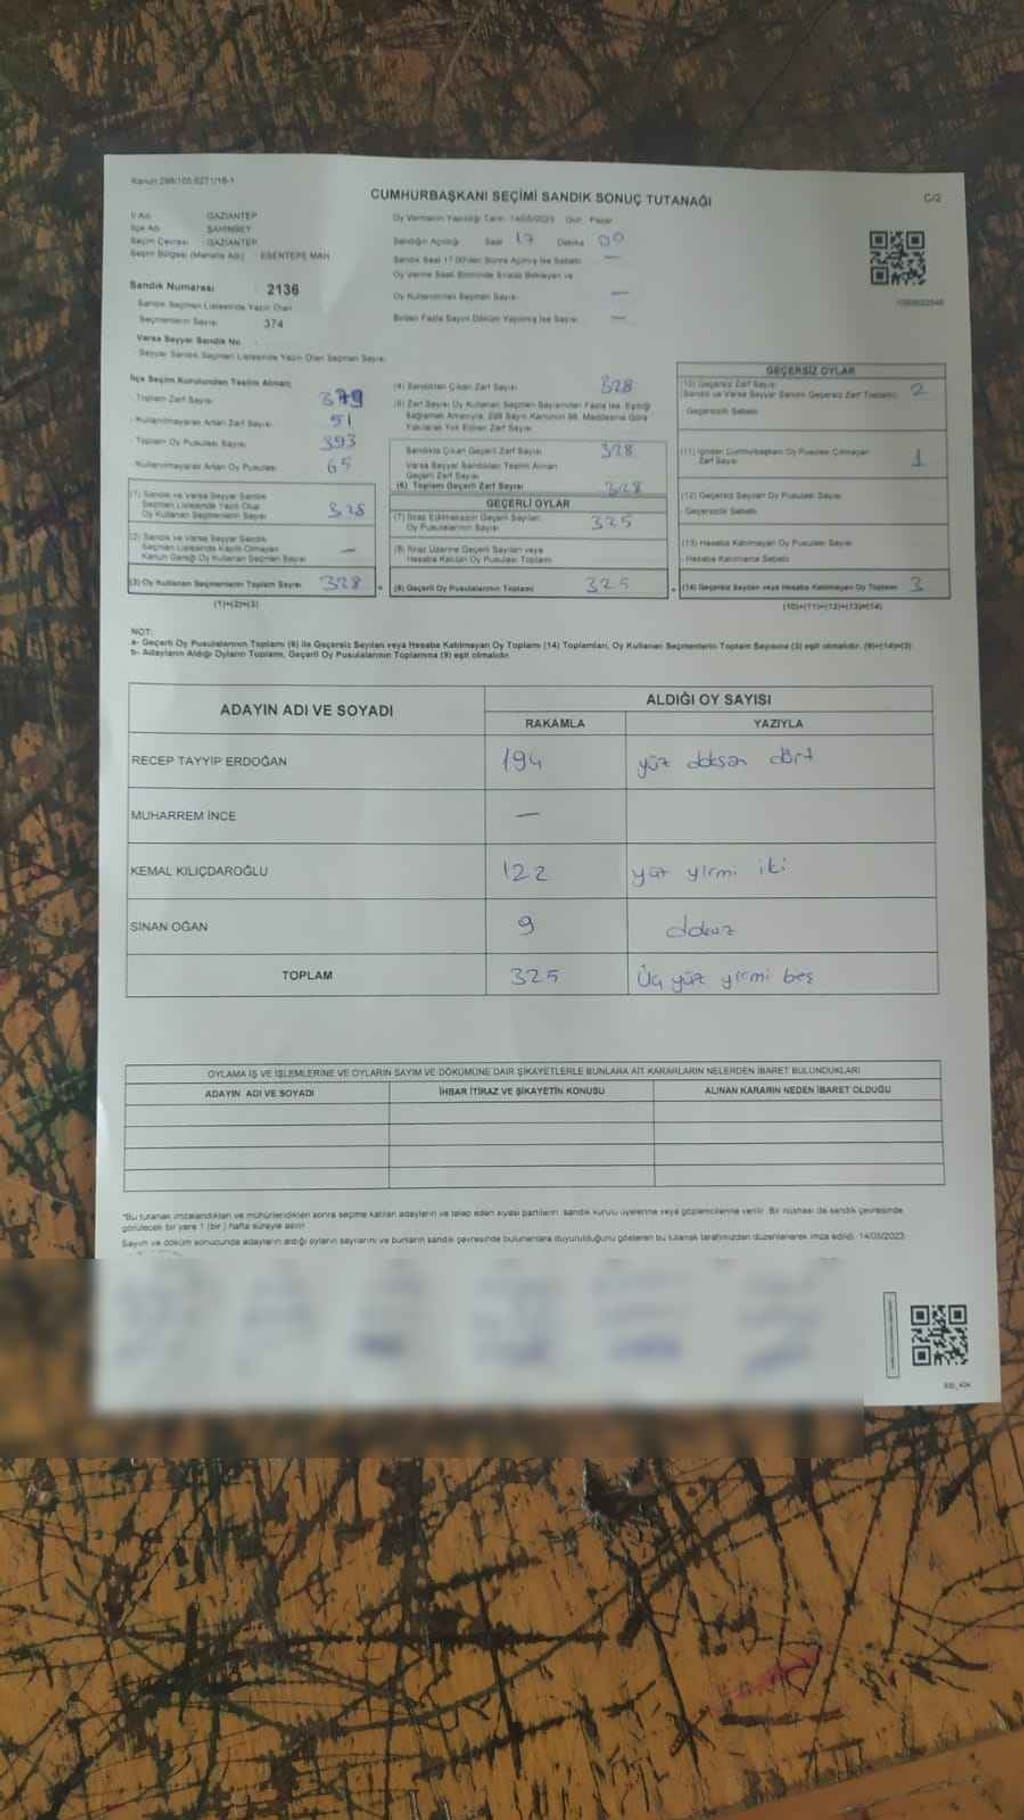 Kanun 298/105 6271/16-1
CUMHURBAŞKANI SEÇİMİ SANDIK SONUÇ TUTANAĞI
C/2
İl Adı GAZİANTEP
İlçe Adı ŞAHİNBEY
Seçim Çevresi GAZİANTEP
Seçim Bölgesi (Mahalle Adı) ESENTEPE MAH
Sandık Numarası 2136
Sandık Seçmen Listesinde Yazılı Olan
Seçmenlerin Sayısı 374
Varsa Seyyar Sandık No
Seyyar Sandık Seçmen Listesinde Yazılı Olan Seçmen Sayısı
Oy Vermenin Yapıldığı Tarih 14/05/2023 Gün Pazar
Sandığın Açıldığı Saat 17 Dakika 00
Sandık Saat 17.00'den Sonra Açılmış İse Sebebi —
Oy Verme Saati Bitiminde Sırada Bekleyen ve
Oy Kullandırılan Seçmen Sayısı —
Birden Fazla Sayım Döküm Yapılmış İse Sayısı —
İlçe Seçim Kurulundan Teslim Alınan
Toplam Zarf Sayısı 379
Kullanılmayarak Artan Zarf Sayısı 51
Toplam Oy Pusulası Sayısı 393
Kullanılmayarak Artan Oy Pusulası 65
(1) Sandık ve Varsa Seyyar Sandık
Seçmen Listesinde Yazılı Olup
Oy Kullanan Seçmenlerin Sayısı 328
(2) Sandık ve Varsa Seyyar Sandık
Seçmen Listesinde Kayıtlı Olmayan
Kanun Gereği Oy Kullanan Seçmen Sayısı —
(3) Oy Kullanan Seçmenlerin Toplam Sayısı 328
(1)+(2)=(3)
(4) Sandıktan Çıkan Zarf Sayısı 328
(5) Zarf Sayısı Oy Kullanan Seçmen Sayısından Fazla İse, Eşitliği
Sağlamak Amacıyla, 298 Sayılı Kanunun 98. Maddesine Göre
Yakılarak Yok Edilen Zarf Sayısı
Sandıkta Çıkan Geçerli Zarf Sayısı 328
Varsa Seyyar Sandıktan Teslim Alınan
Geçerli Zarf Sayısı
(6) Toplam Geçerli Zarf Sayısı 328
GEÇERLİ OYLAR
(7) İtiraz Edilmeksizin Geçerli Sayılan
Oy Pusulalarının Sayısı 325
(8) İtiraz Üzerine Geçerli Sayılan veya
Hesaba Katılan Oy Pusulası Toplamı
(9) Geçerli Oy Pusulalarının Toplamı 325
GEÇERSİZ OYLAR
(10) Geçersiz Zarf Sayısı
Sandık ve Varsa Seyyar Sandık Geçersiz Zarf Toplamı 2
Geçersizlik Sebebi
(11) İçinden Cumhurbaşkanı Oy Pusulası Çıkmayan
Zarf Sayısı 1
(12) Geçersiz Sayılan Oy Pusulası Sayısı
Geçersizlik Sebebi
(13) Hesaba Katılmayan Oy Pusulası Sayısı
Hesaba Katılmama Sebebi
(14) Geçersiz Sayılan veya Hesaba Katılmayan Oy Toplamı 3
(10)+(11)+(12)+(13)=(14)
NOT:
a- Geçerli Oy Pusulalarının Toplamı (9) ile Geçersiz Sayılan veya Hesaba Katılmayan Oy Toplamı (14) Toplamları, Oy Kullanan Seçmenlerin Toplam Sayısına (3) eşit olmalıdır. (9)+(14)=(3)
b- Adayların Aldığı Oyların Toplamı, Geçerli Oy Pusulalarının Toplamına (9) eşit olmalıdır.
ADAYIN ADI VE SOYADI ALDIĞI OY SAYISI
RAKAMLA YAZIYLA
RECEP TAYYİP ERDOĞAN 194 yüz doksan dört
MUHARREM İNCE —
KEMAL KILIÇDAROĞLU 122 yüz yirmi iki
SİNAN OĞAN 9 dokuz
TOPLAM 325 Üç yüz yirmi beş
OYLAMA İŞ VE İŞLEMLERİNE VE OYLARIN SAYIM VE DÖKÜMÜNE DAİR ŞİKAYETLERLE BUNLARA AİT KARARLARIN NELERDEN İBARET BULUNDUKLARI
ADAYIN ADI VE SOYADI İHBAR İTİRAZ VE ŞİKAYETİN KONUSU ALINAN KARARIN NEDEN İBARET OLDUĞU
*Bu tutanak imzalandıktan ve mühürlendikten sonra seçime katılan adayların ve talep eden siyasi partilerin sandık kurulu üyelerine veya gözlemcilerine verilir. Bir nüshası da sandık çevresinde
görülecek bir yere 1 (bir) hafta süreyle asılır.
Sayım ve döküm sonucunda adayların aldığı oyların sayılarını ve bunların sandık çevresinde bulunanlara duyurulduğunu gösteren bu tutanak tarafımızdan düzenlenerek imza edildi. 14/05/2023